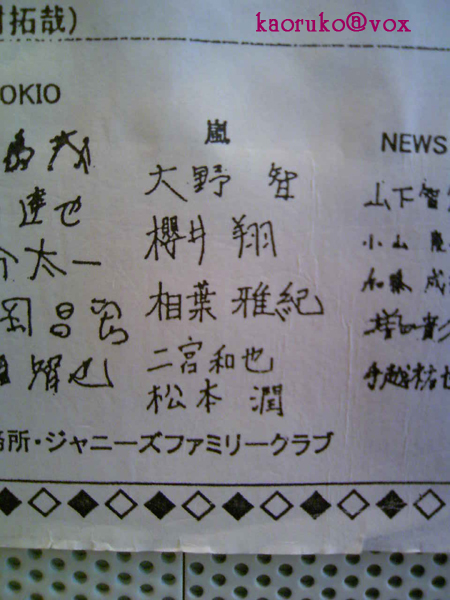 村拓哉)
kaoruko@vox
OKIO
嵐
NEWS
島茂
達也
介太一
岡昌宏
智也
大野 智
櫻井 翔
相葉 雅紀
二宮和也
松本 潤
山下智
小山 慶
加藤 成
増田貴久
手越祐也
務所・ジャニーズファミリークラブ